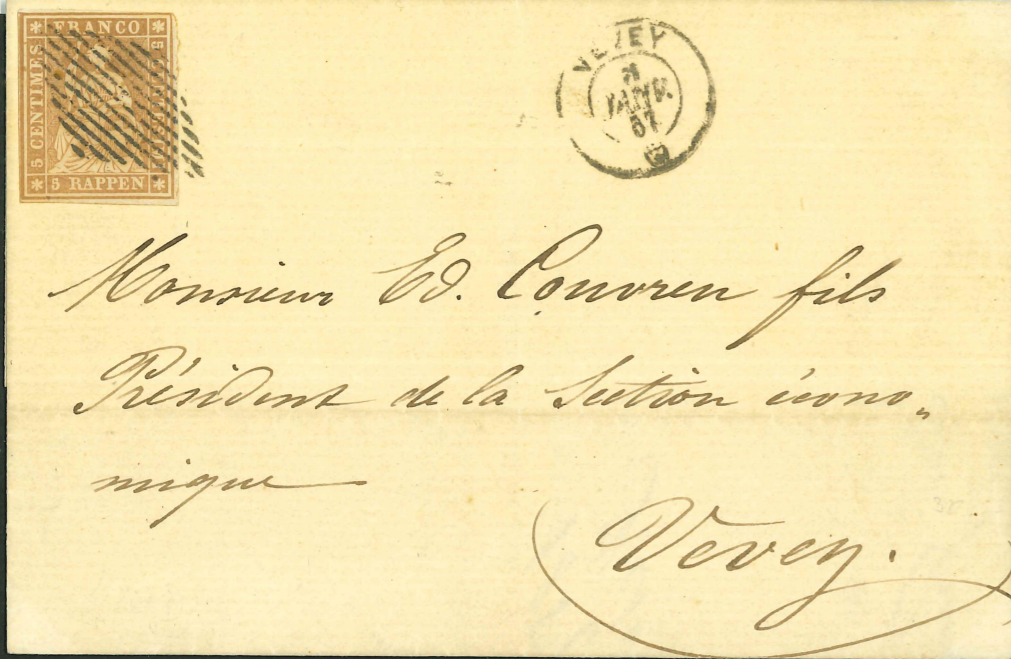 FRANCO
5 CENTIMES
5 RAPPEN
VEVEY
JANV.
57
Monsieur Ed. Couvreu fils
Président de la Section écono„
mique
Vevey.